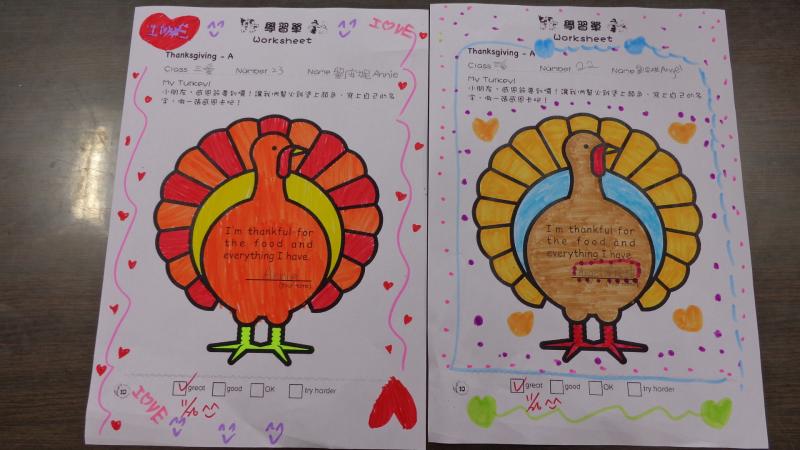 I LOVE
學習單
Worksheet
I LOVE
Thanksgiving - A
Class 三 Number 23 Name Annie
My Turkey!
小朋友，感恩節要到囉！讓我們幫火雞塗上顏色，寫上自己的名
字，做一張感恩卡吧！
I'm thankful for
the food and
everything I have.
Annie
(Your name)
great good OK try harder
10
I LOVE
學習單
Worksheet
Thanksgiving - A
Class Number 22 Name Angel
My Turkey!
小朋友，感恩節要到囉！讓我們幫火雞塗上顏色，寫上自己的名
字，做一張感恩卡吧！
I'm thankful for
the food and
everything I have.
great good OK try harder
10